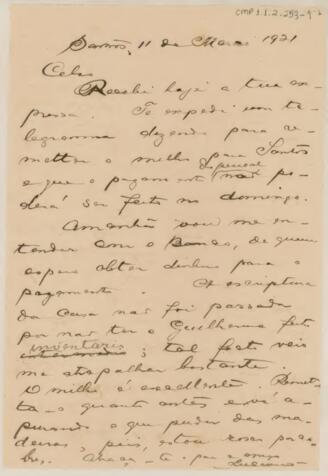 CMP 1.1.2.253-9
Santos, 11 de Março 1921
Celso
Recebi hoje a tua ex-
pressa. Te expedi um te-
legramma dizendo para re-
metter o milho para Santos
e que o pagamento especial não po-
derá ser feito no domingo.
Amanhã vou me en-
tender com o Banco, de quem
espero obter dinheiro para o
pagamento. A escriptura
da Casa não foi passada
por não ter o Guilherme feito
inventario; tal facto veiu
me atrapalhar bastante.
O milho é excellente. Remet-
ta-o quanto antes e vá a-
purando o que puder das ma-
deiras, pois, estou
Luciano